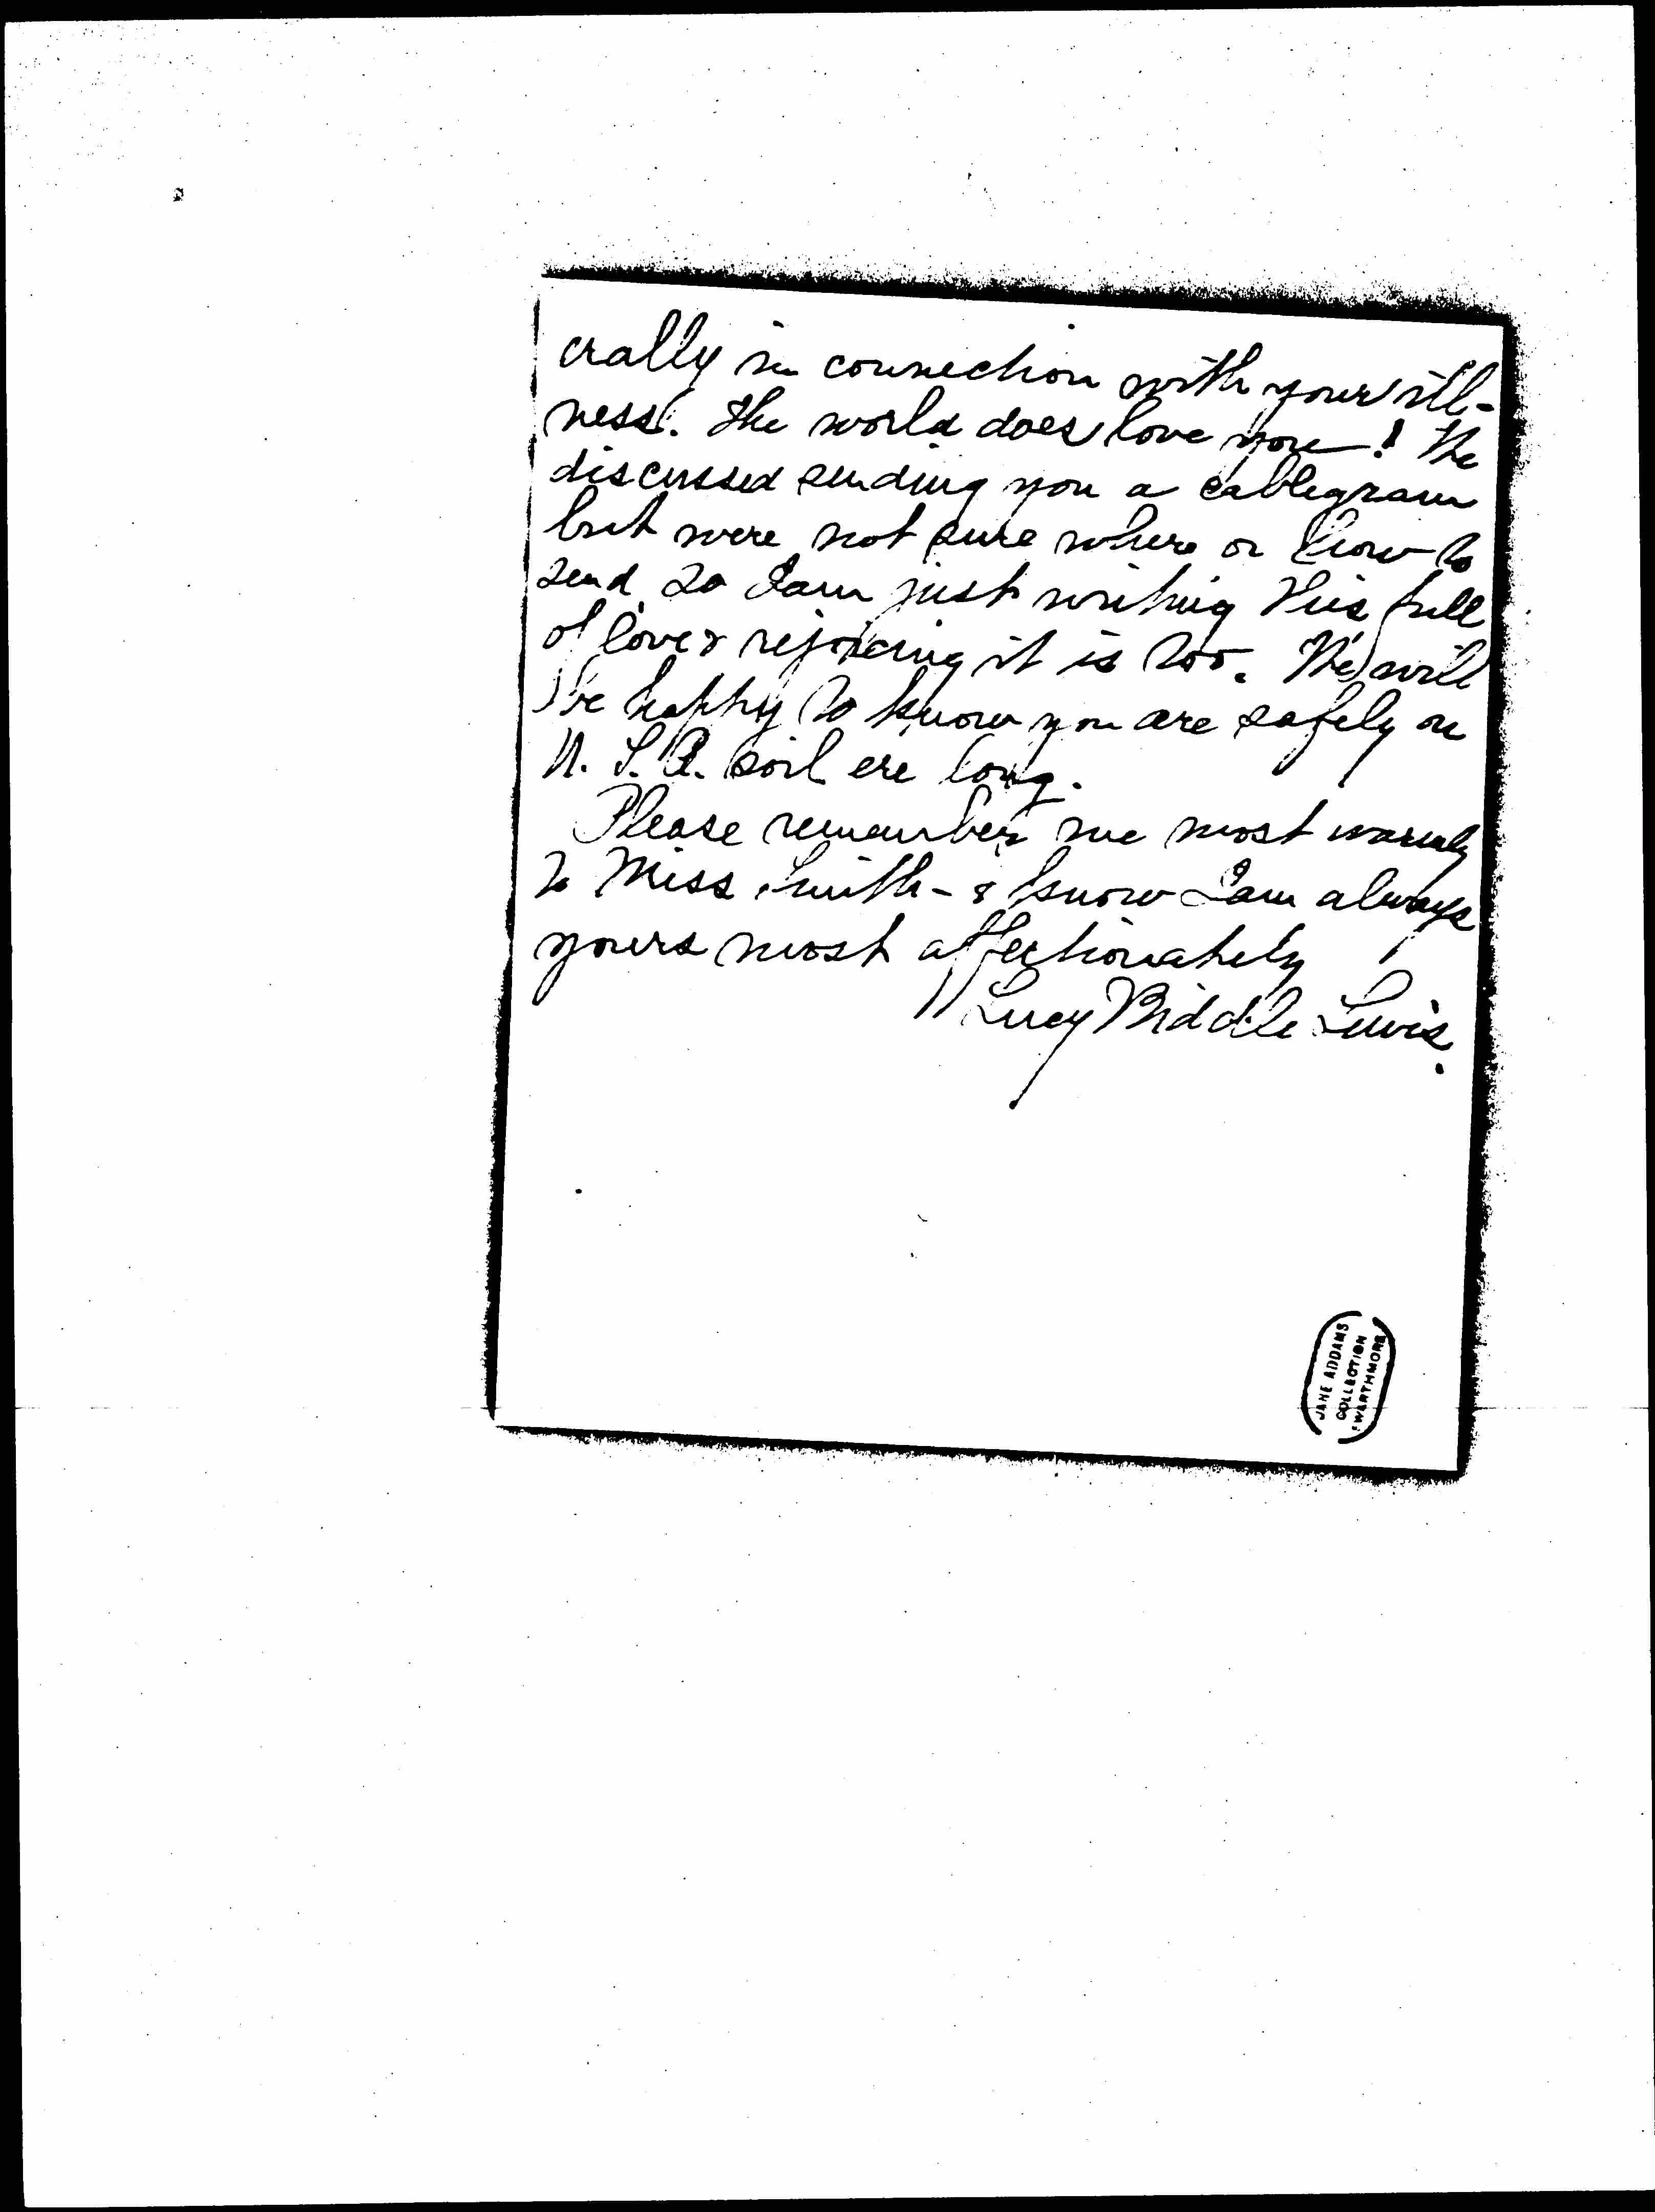 erally in connection with your ill-
ness. The world does love you! We
discussed sending you a cablegram
but were not sure where or how to
send so I am just writing this full
of love & rejoicing it is too. We will
be happy to know you are safely on
U. S. A. soil ere long.
Please remember me most warmly
to Miss Smith - & know I am always
yours most affectionately
Lucy Biddle Lewis.
JANE ADDAMS
COLLECTION
SWARTHMORE